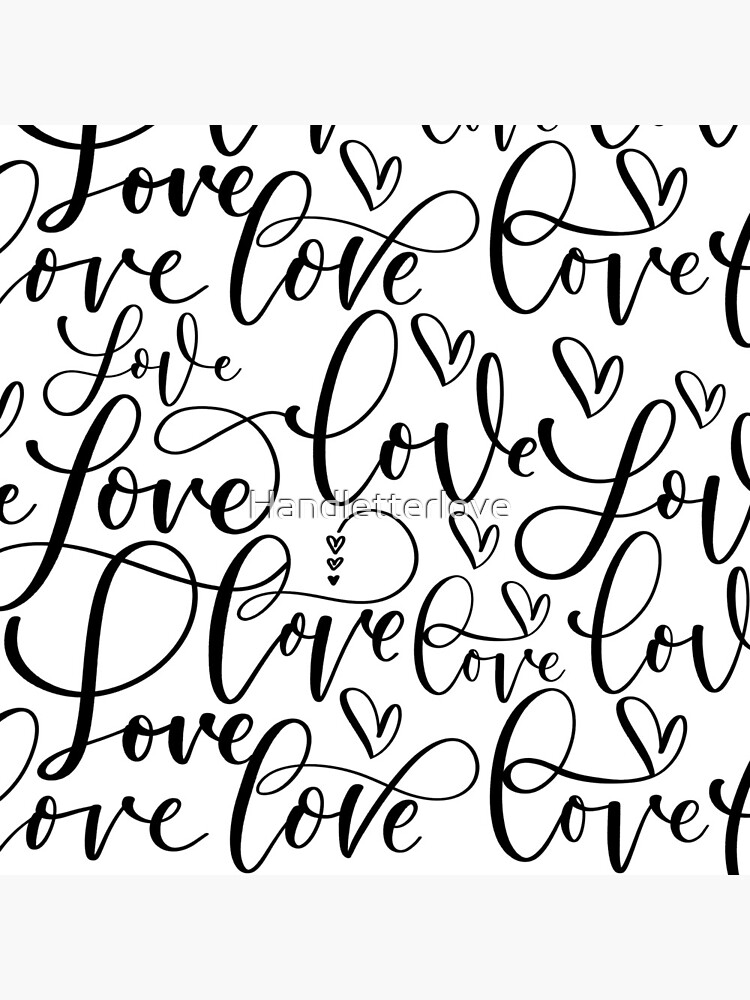 love love
Love
love love love
Love
love
Love Lov
Handletterlove
love lov
love
Love
love love love